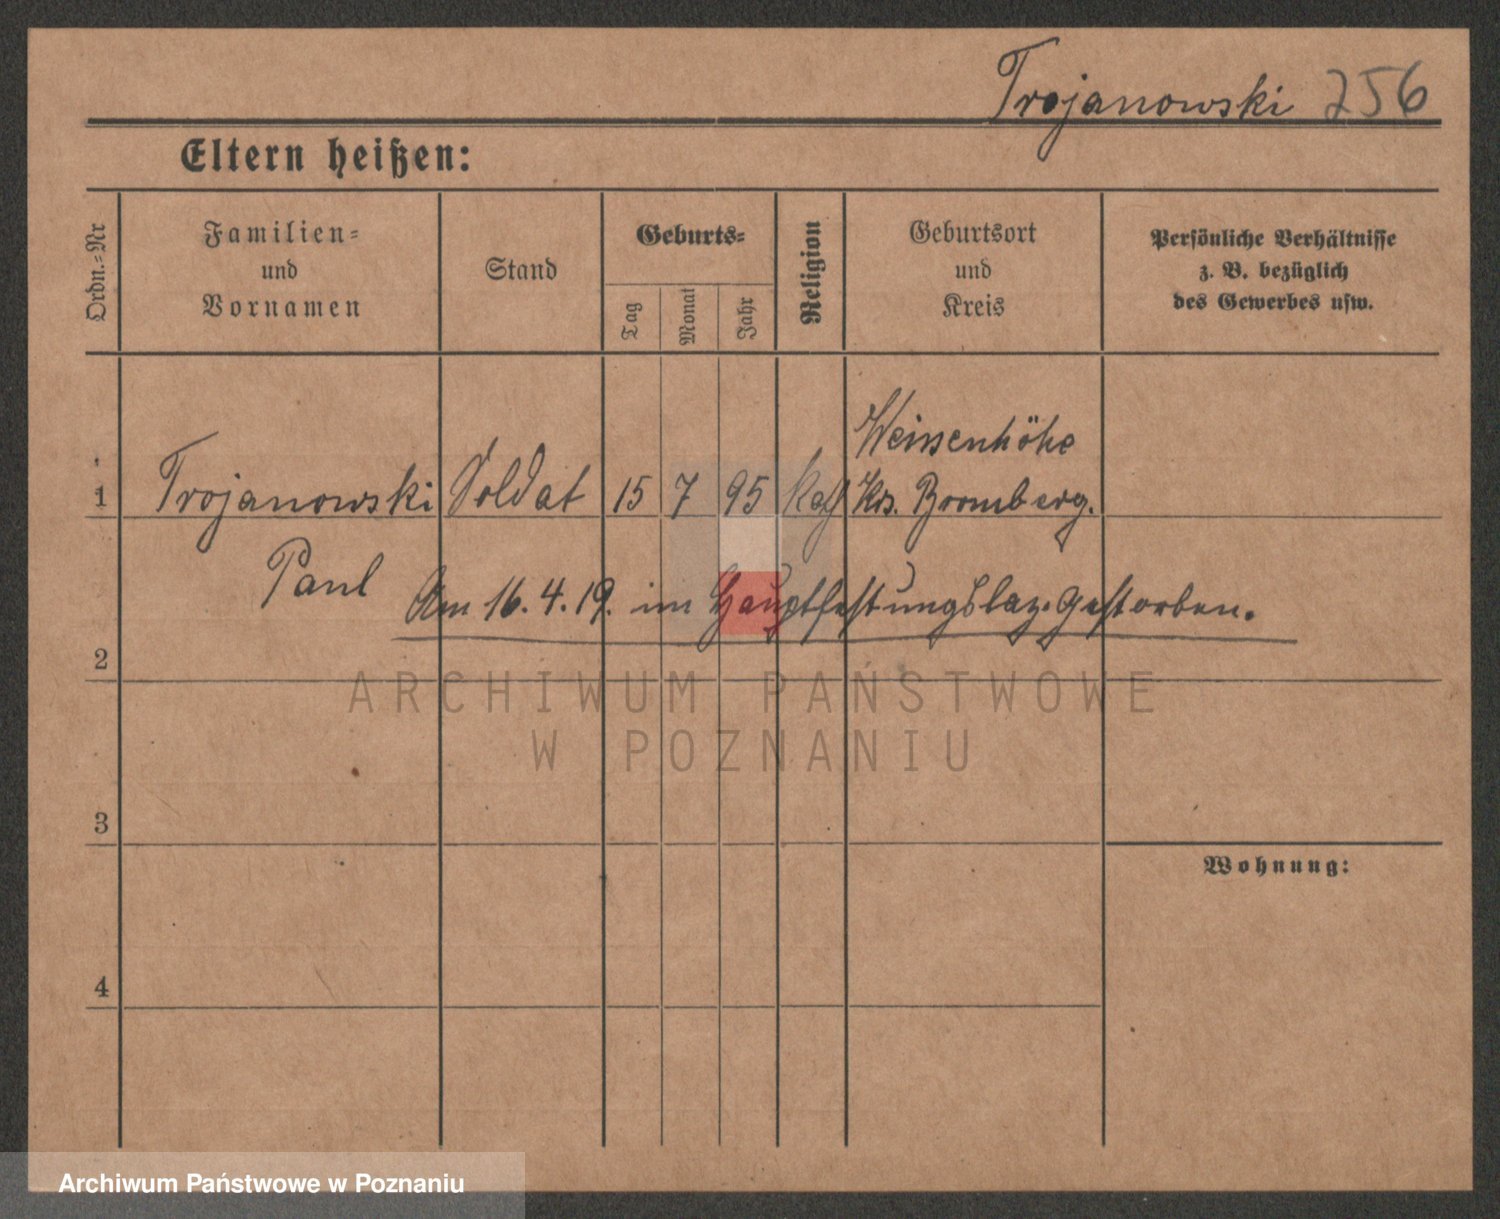 Trojanowski 256
Eltern heißen:
Ordn.=Nr
Familien=
und
Vornamen
Stand
Geburts=
Tag
Monat
Jahr
Religion
Geburtsort
und
Kreis
Persönliche Verhältnisse
z. B. bezüglich
des Gewerbes usw.
Weissenhöhe
1 Trojanowski Soldat 15 7 95 kath Krs. Bromberg.
Paul
Am 16.4.19. im Hauptfestungslaz. gestorben.
2
ARCHIWUM PAŃSTWOWE
W POZNANIU
3
Wohnung:
4
Archiwum Państwowe w Poznaniu